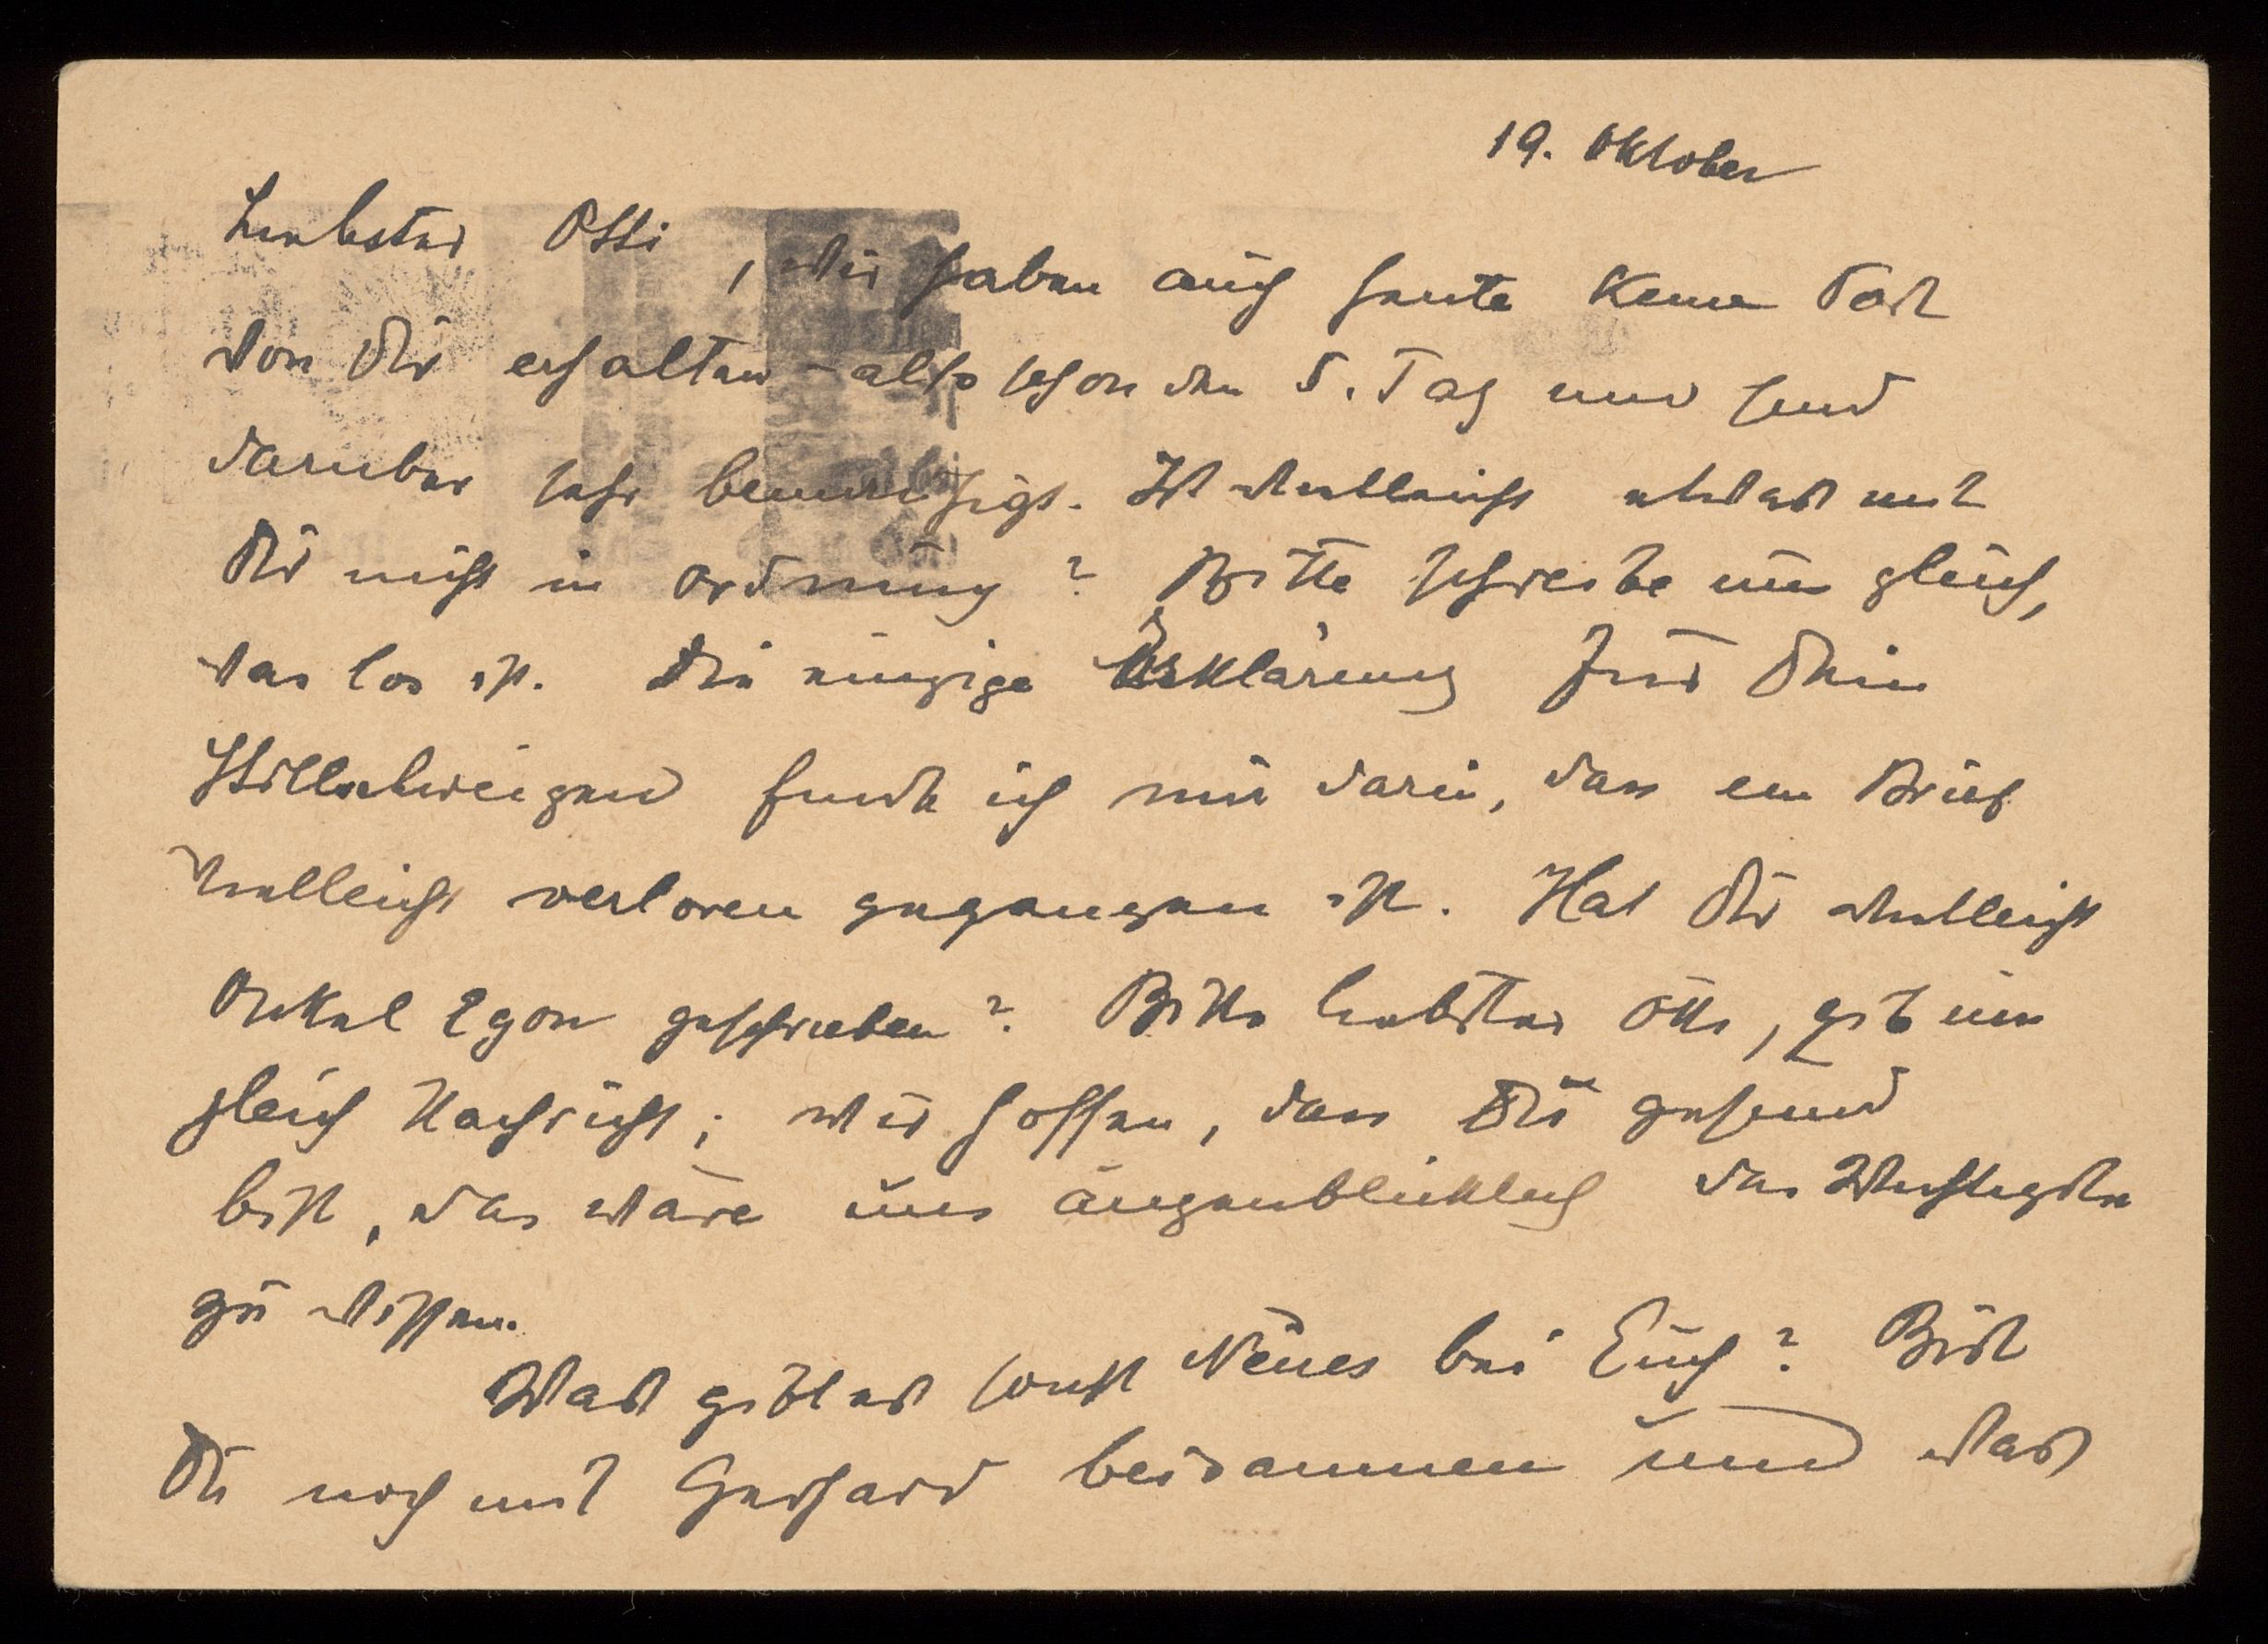 19. Oktober
Liebster Otti, wir haben auch heute keine Post
von Dir erhalten - also schon den 5. Tag und sind
darüber sehr beunruhigt. Ist vielleicht etwas mit
Dir nicht in Ordnung? Bitte schreibe uns gleich,
was los ist. Die einzige Erklärung für Dein
Stillschweigen finde ich nur darin, dass ein Brief
vielleicht verloren gegangen ist. Hat Dir vielleicht
Onkel Egon geschrieben? Bitte liebster Otti, gib uns
gleich Nachricht; wir hoffen, dass Du gesund
bist, das wäre uns augenblicklich das Wichtigste
zu wissen.
Was gibt es sonst Neues bei Euch? Bist
Du noch mit Gerhard beisammen und was